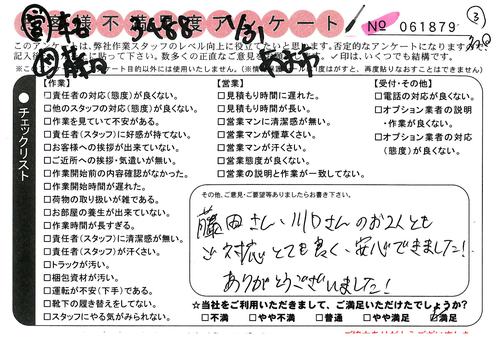 お客様不満足度アンケート
No 061879
3488
1/31
このアンケートは、弊社作業スタッフのレベル向上に役立てたいと思います。否定的なアンケートになりますが
記入後
【作業】
□責任者の対応(態度)が良くない。
□他のスタッフの対応(態度)が良くない。
□作業を見ていて不安がある。
□責任者(スタッフ)に好感が持てない。
□お客様への挨拶が出来ていない。
□ご近所への挨拶・気遣いが無い。
□作業開始前の内容確認がなかった。
□作業開始時間が遅れた。
□荷物の取り扱いが雑である。
□お部屋の養生が出来ていない。
□作業時間が長すぎる。
□責任者(スタッフ)に清潔感が無い。
□責任者(スタッフ)が汗くさい。
□トラックが汚い。
□梱包資材が汚い。
□運転が不安(下手)である。
□靴下の履き替えをしてない。
□スタッフにやる気がみられない。
【営業】
□見積もり時間に遅れた。
□見積もり時間が長い。
□営業マンに清潔感が無い。
□営業マンが煙草くさい。
□営業マンが汗くさい。
□営業態度が良くない。
□営業の説明と作業が一致してない。
【受付・その他】
□電話の対応が良くない。
□オプション業者の説明
・作業が良くない。
□オプション業者の対応
(態度)が良くない。
●チェックリスト
その他、ご意見・ご要望等ありましたらお書き下さい。
藤田さん、川口さんのお2人とも
ご対応とても良く、安心できました!
ありがとうございました!
☆当社をご利用いただきまして、ご満足いただけたでしょうか?
□不満 □やや不満 □普通 □やや満足 ☑満足